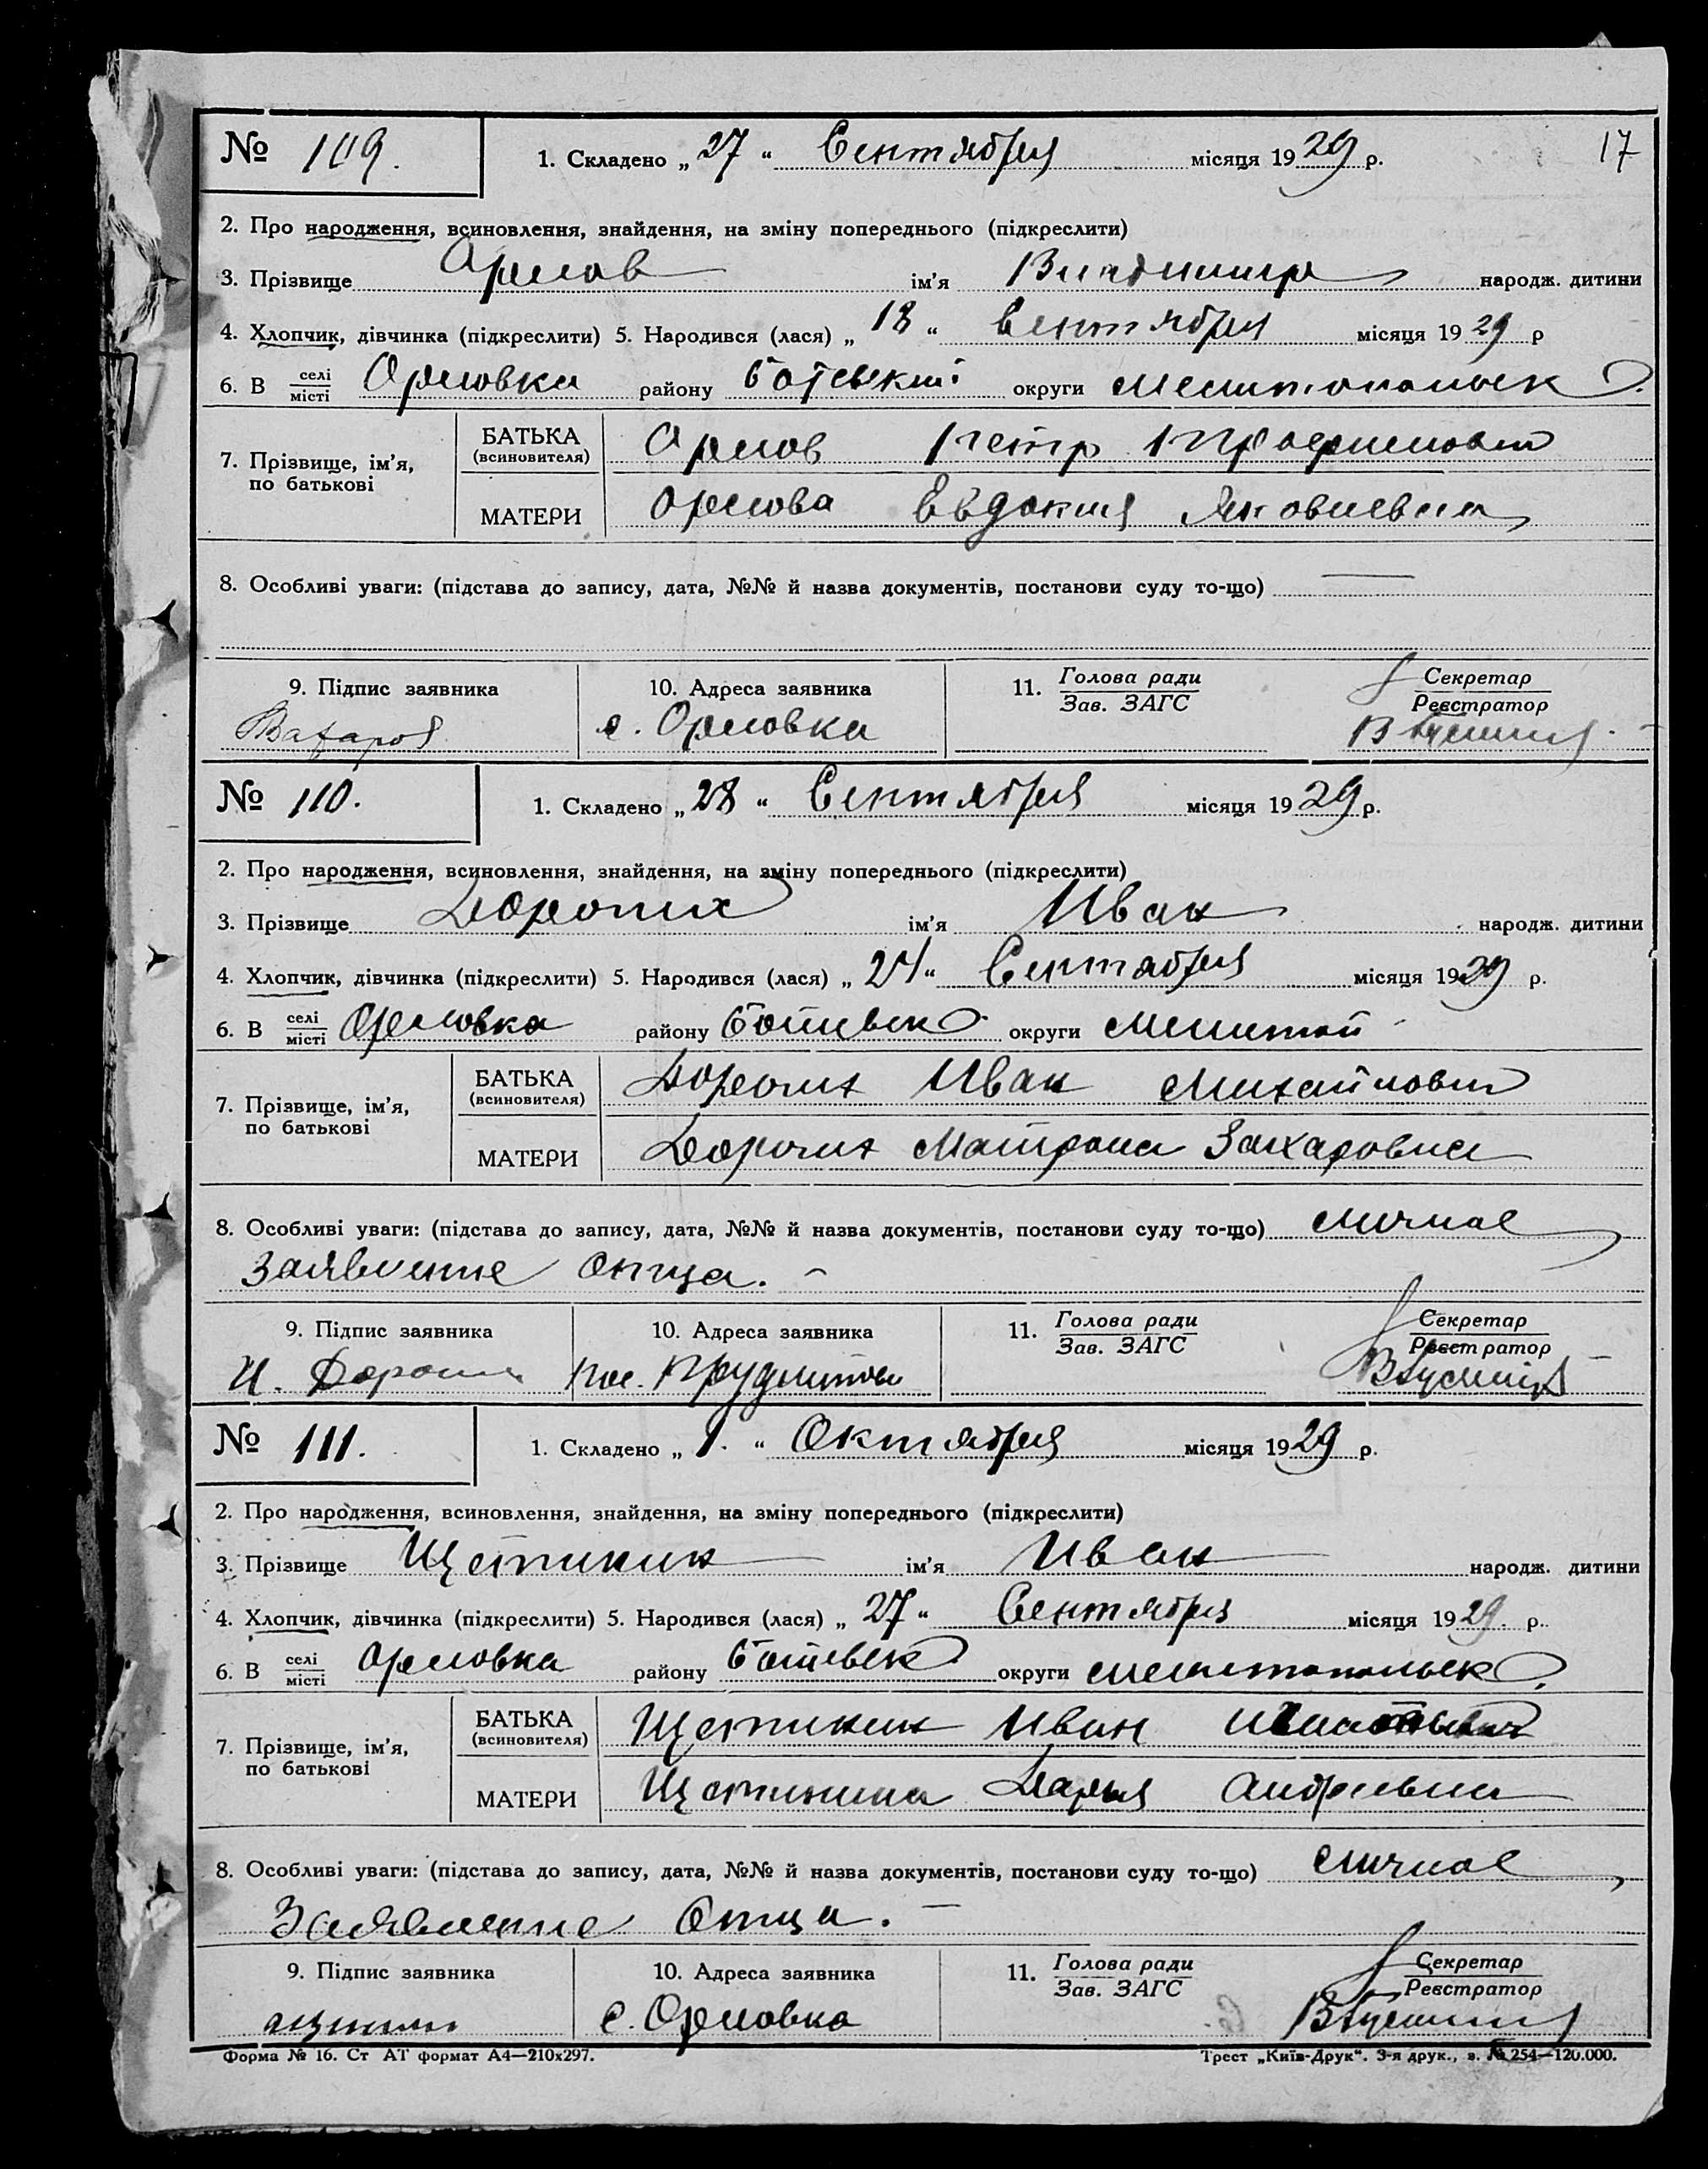 17
№ 109. 1. Складено „27“ Сентября місяця 1929 р.
2. Про народження, всиновлення, знайдення, на зміну попереднього (підкреслити)
3. Прізвище Орлов ім'я Владимир народж. дитини
4. Хлопчик, дівчинка (підкреслити) 5. Народився (лася) „18“ Сентября місяця 1929 р
6. В селі місті Орловка району Ботевский округи Мелитопольск
7. Прізвище, ім'я, по батькові БАТЬКА (всиновителя) Орлов Петр
МАТЕРИ Орлова Евдокия Яковлевна
8. Особливі уваги: (підстава до запису, дата, №№ й назва документів, постанови суду то-що) —
9. Підпис заявника 10. Адреса заявника 11. Голова ради Зав. ЗАГС Секретар Реєстратор
с. Орловка
№ 110. 1. Складено „28“ Сентября місяця 1929 р.
2. Про народження, всиновлення, знайдення, на зміну попереднього (підкреслити)
3. Прізвище Доропих ім'я Иван народж. дитини
4. Хлопчик, дівчинка (підкреслити) 5. Народився (лася) „24“ Сентября місяця 1929 р.
6. В селі місті Орловка району Ботиевск округи Мелитоп
7. Прізвище, ім'я, по батькові БАТЬКА (всиновителя) Иван Михайлович
МАТЕРИ Матрона Захаровна
8. Особливі уваги: (підстава до запису, дата, №№ й назва документів, постанови суду то-що) личное
Заявление Отца. —
9. Підпис заявника 10. Адреса заявника 11. Голова ради Зав. ЗАГС Секретар Реєстратор
И. пос.
№ 111. 1. Складено „1.“ Октября місяця 1929 р.
2. Про народження, всиновлення, знайдення, на зміну попереднього (підкреслити)
3. Прізвище Щетинин ім'я Иван народж. дитини
4. Хлопчик, дівчинка (підкреслити) 5. Народився (лася) „27“ Сентября місяця 1929. р.
6. В селі місті Орловка району Ботиевск округи Мелитопольск.
7. Прізвище, ім'я, по батькові БАТЬКА (всиновителя) Щетинин Иван
МАТЕРИ Щетинина Дарья Андреевна
8. Особливі уваги: (підстава до запису, дата, №№ й назва документів, постанови суду то-що) личное
Заявление Отца. —
9. Підпис заявника 10. Адреса заявника 11. Голова ради Зав. ЗАГС Секретар Реєстратор
с. Орловка
Форма № 16. Ст АТ формат А4—210х297. Трест „Київ-Друк“. 3-я друк., з. № 254—120.000.